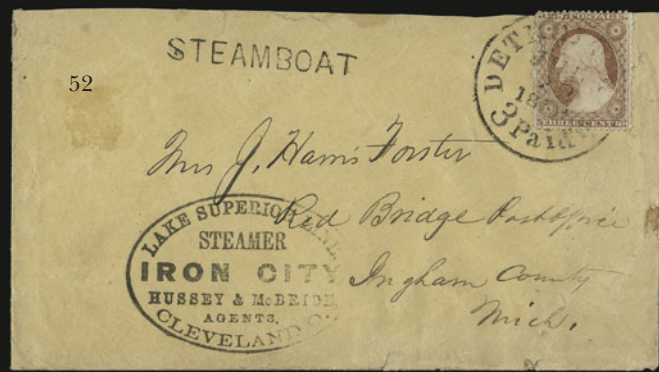 STEAMBOAT
52
DET
18
3 Paid
THREE CENTS
Mrs J. Harris Forster
Red Bridge Post Office
Ingham County
Mich.
LAKE SUPERIOR LINE
STEAMER
IRON CITY
HUSSEY & McBRIDE
AGENTS,
CLEVELAND O.